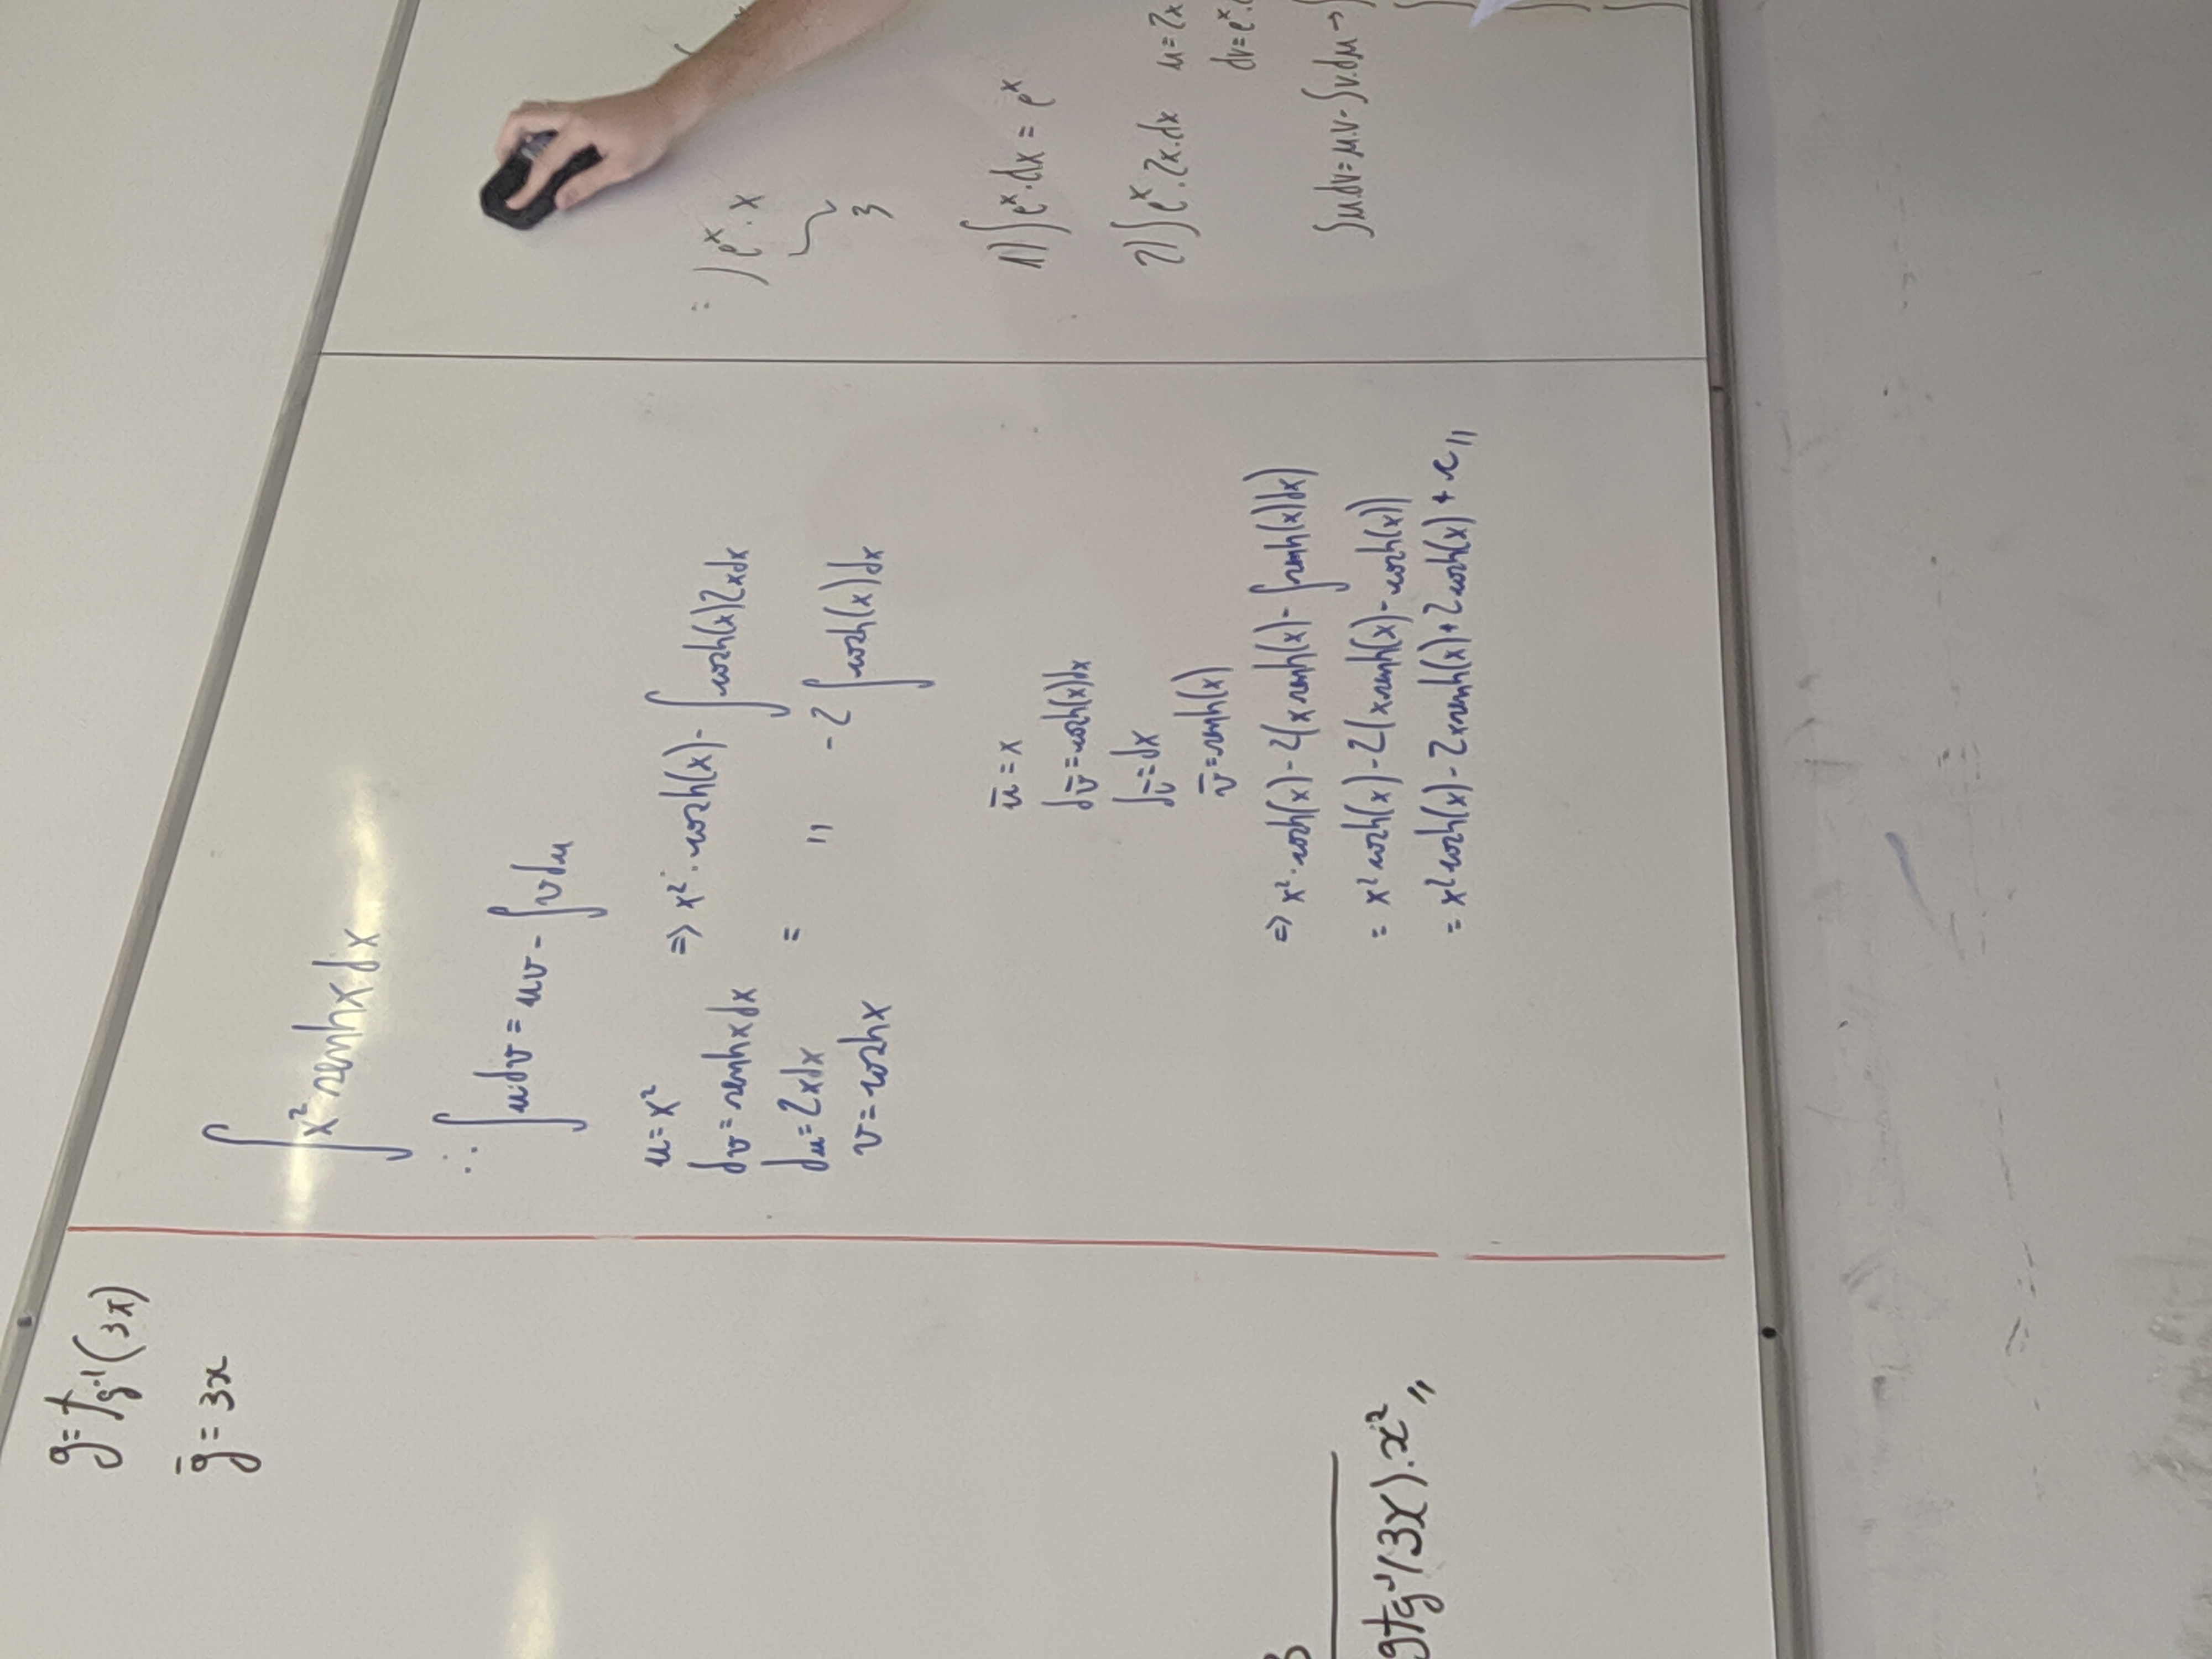 g = tg⁻¹(3x)
g̅ = 3x
3
gtg⁻¹(3x).x²,,
∫x² senhx dx
∴ ∫u dv = uv - ∫v du
u = x²
dv = senhx dx
du = 2x dx
v = coshx
=> x² · cosh(x) - ∫cosh(x) 2x dx
= ,, -2 ∫cosh(x) dx
u̅ = x
dv̅ = cosh(x) dx
v̅ = senh(x)
=> x² · cosh(x) - 2(x senh(x) - ∫senh(x) dx)
= x² cosh(x) - 2(x senh(x) - cosh(x))
= x² cosh(x) - 2x senh(x) + 2 cosh(x) + c ,,
= ∫eˣ . x
3
1) ∫eˣ . dx = eˣ
2) ∫eˣ . 2x . dx u = 2x
dv = eˣ .
∫u.dv = u.v - ∫v.du → ∫